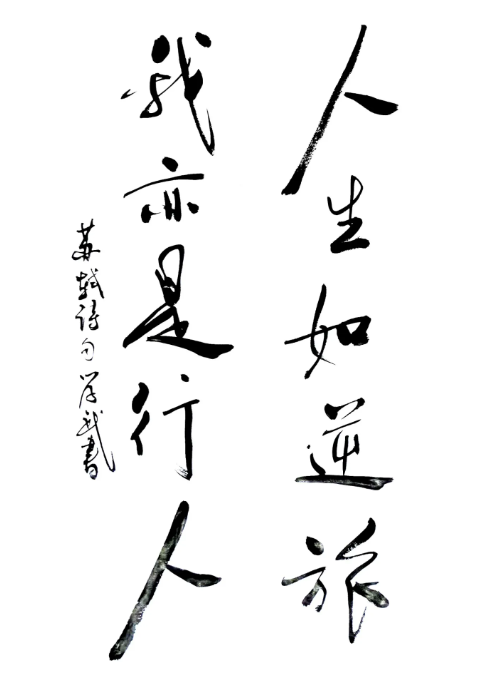 人生如逆旅
我亦是行人
苏轼诗句学武書